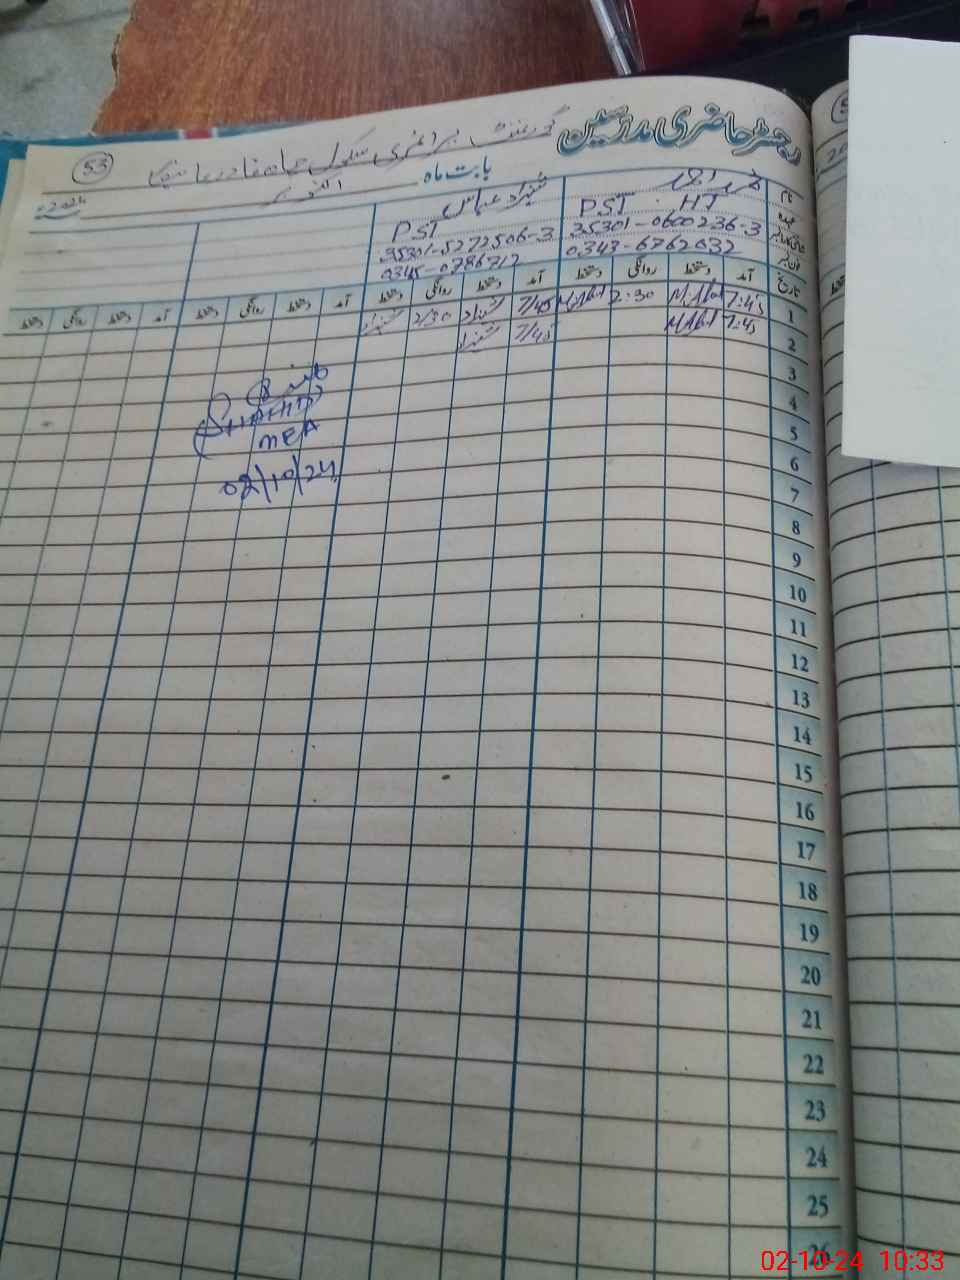 رجسٹر حاضری مدرسین
گورنمنٹ پرائمری سکول چاہ
53
بابت ماہ اکتوبر
2024
نام
عہدہ PST HT
شناختی کارڈ نمبر 35301-0600236-3
فون نمبر 0343-6762032
شہزاد عباس
PST
35301-5272506-3
0345-0786712
تاریخ آمد دستخط روانگی دستخط آمد دستخط روانگی دستخط آمد دستخط روانگی دستخط آمد دستخط روانگی دستخط
1 7:45 M.Abd 2:30 M.Abd 7/45 شہزاد 2/30 شہزاد
2 7:45 M.Abd 7/45 شہزاد
3
4
5
6
7
8
9
10
11
12
13
14
15
16
17
18
19
20
21
22
23
24
25
26
(SHAHID)
MEA
02/10/24
02-10-24 10:33